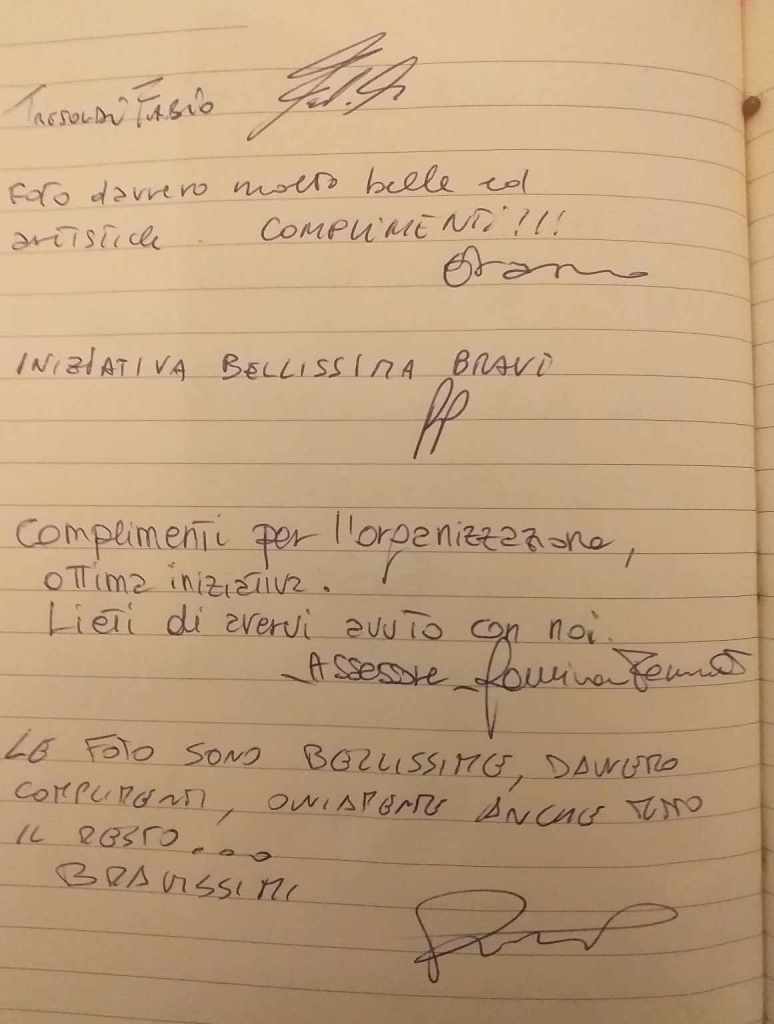 TRESOLDI FABIO
Foto davvero molto belle ed
artistiche. COMPLIMENTI!!!
INIZIATIVA BELLISSIMA BRAVI
Complimenti per l'organizzazione,
ottima iniziativa.
Lieti di avervi avuto con noi.
- Assessore -
LE FOTO SONO BELLISSIME, DAVVERO
COMPLIMENTI, OVVIAMENTE ANCHE TUTTO
IL RESTO....
BRAVISSIMI